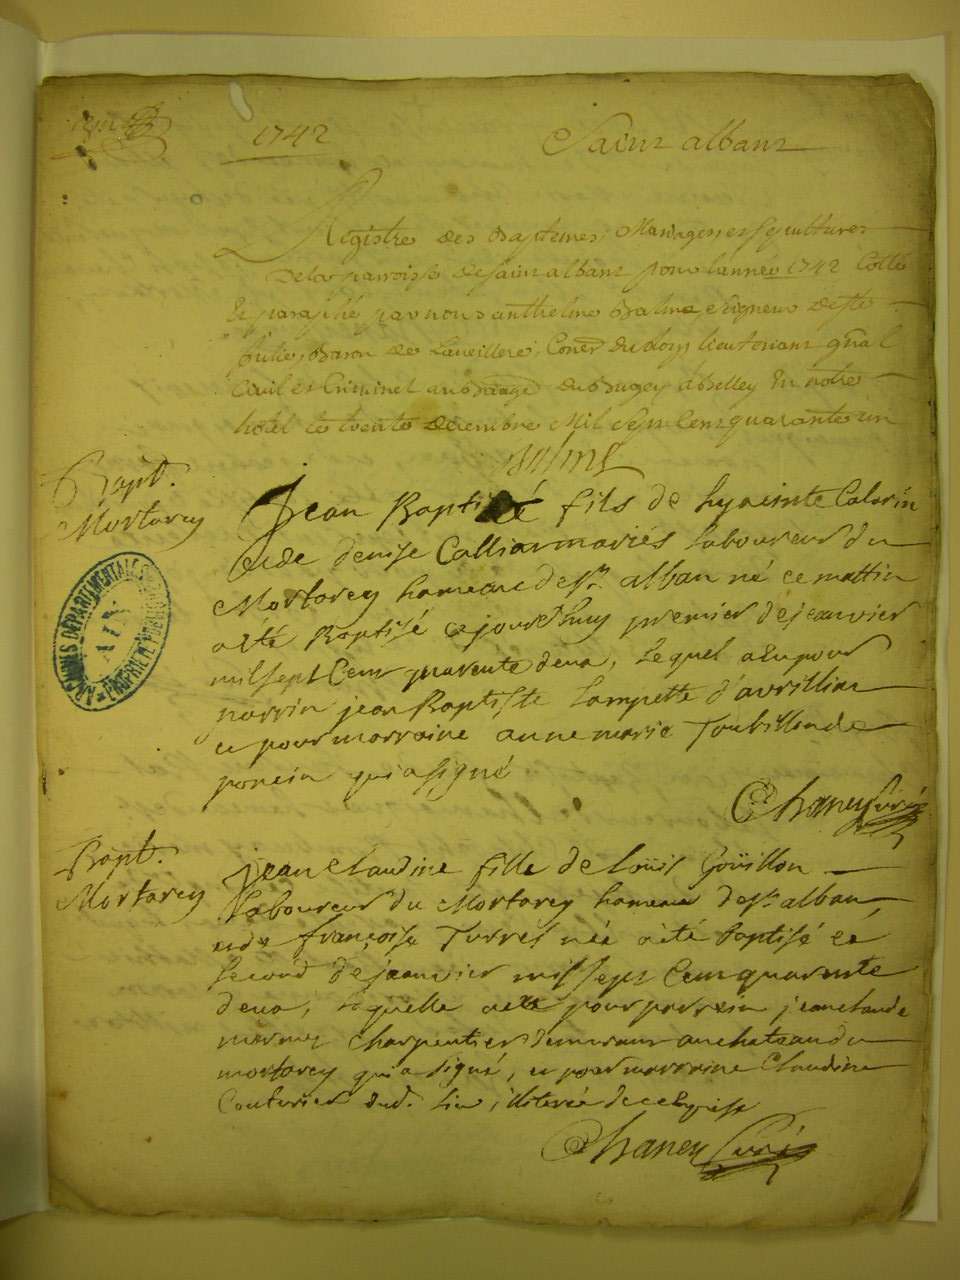 1742
Saint albans
Registre des Baptemes, Mariages et sepultures
de la parroisse de saint albans pour l'année 1742 Cotté
Et paraphé par nous anthelme Balme seigneur de ste
Julie, Baron de Coner du Roy lieutenant gnal
Civil et Criminel au Baage du Bugey à Belley En notre
hotel le trente decembre Mil sept Cent quarante un
Balme
Bapt.
Mortarey
Jean Baptiste fils de hyacinte Calorin
et de denise Calliar mariés laboureur du
Mortarey hameau de st. alban né ce mattin
a été Baptisé cejourd'huy premier de jeanvier
mil sept Cent quarente deux, lequel a eu pour
parrin jean Baptiste lampette d'avrillia
et pour marraine anne marie de
poncin qui a signé
Chaney Curé
ARCHIVES DÉPARTEMENTALES
AIN
PROPRIÉTÉ PUBLIQUE
Bapt.
Mortarey
jean Claudine fille de loüis Goüillon
laboureur du Mortarey hameau de st. alban
et de françoise Turrel née a été baptisé le
second de jeanvier mil sept Cent quarente
deux, laquelle a eu pour parrein jean claude
mermez charpentier demeurant au chateau du
mortarey qui a signé, et pour marraine Claudine
Couturier dud. lieu, illiterée de ce enquise
Chaney Curé